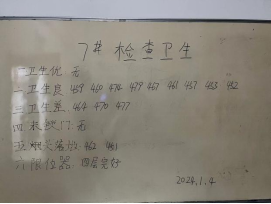 7# 检查卫生
一 卫生优 无
二 卫生良 459 460 474 479 467 461 457 453 452
三 卫生差 464 470 477
四 未锁门:无
五 烟头落地 462 461
六 限位器 四层完好
2024.1.4